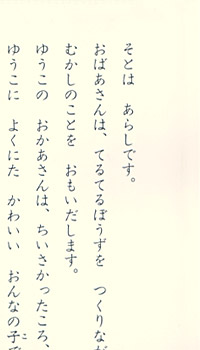 そとは　あらしです。
おばあさんは、てるてるぼうずを　つくりなが
むかしのことを　おもいだします。
ゆうこの　おかあさんは、ちいさかったころ、
ゆうこに　よくにた　かわいい　おんなの子で